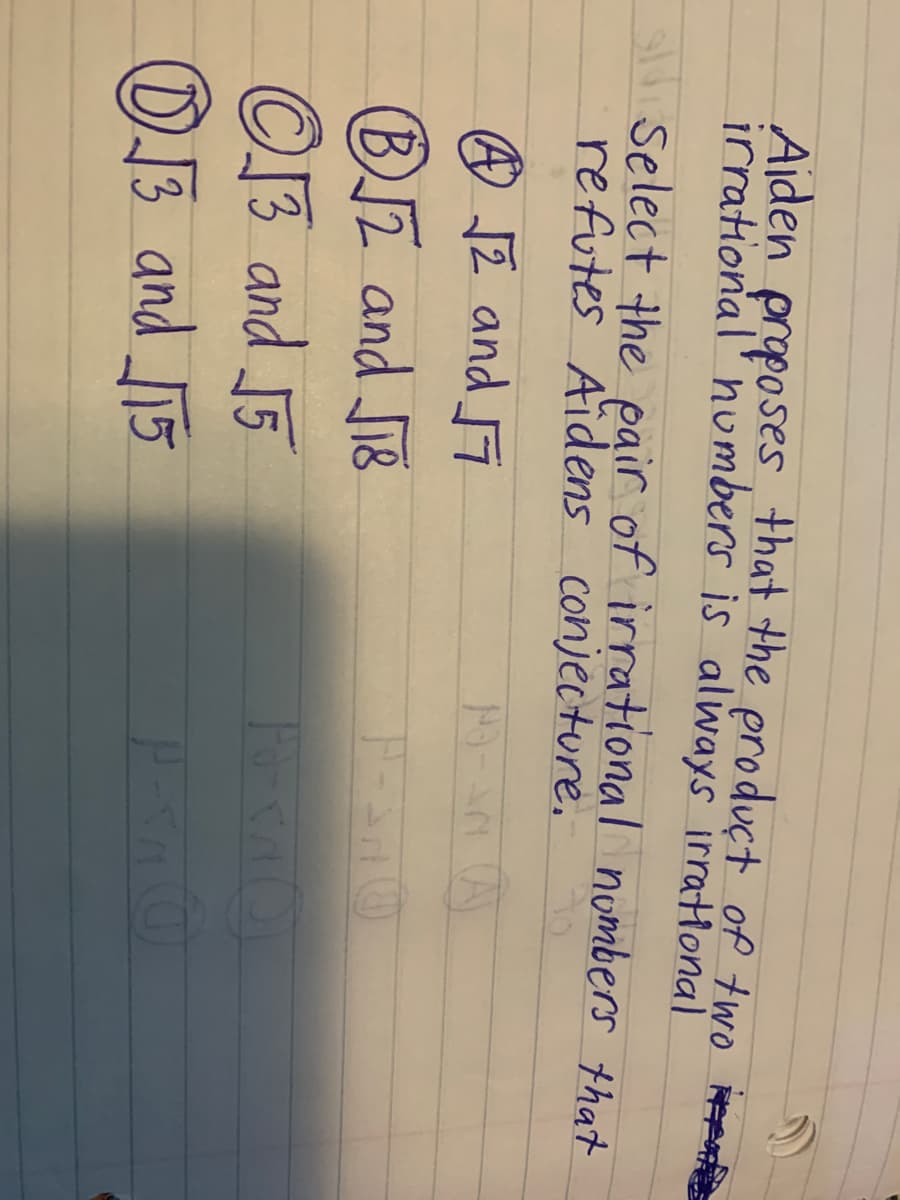 Aiden proposes that the product of two
irrational numbers is always irrational
Select the pair of irrational numbers that
refutes Aidens conjecture.
Ⓐ √2 and √7
Ⓑ √2 and √18
Ⓒ √3 and √5
Ⓓ √3 and √15